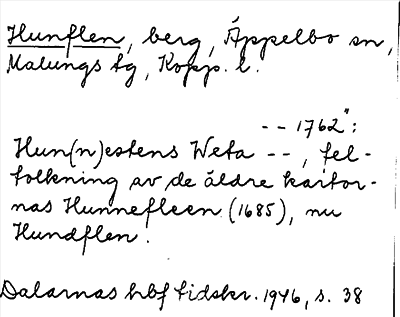 Hunflen, berg, Äppelbo sn,
Malungs tg, Kopp. l.
-- 1762":
Hun(n)estens Weta --, fel-
tolkning av de äldre kartor-
nas Hunnefleen (1685), nu
Hundflen.
Dalarnas hbf tidskr. 1946, s. 38